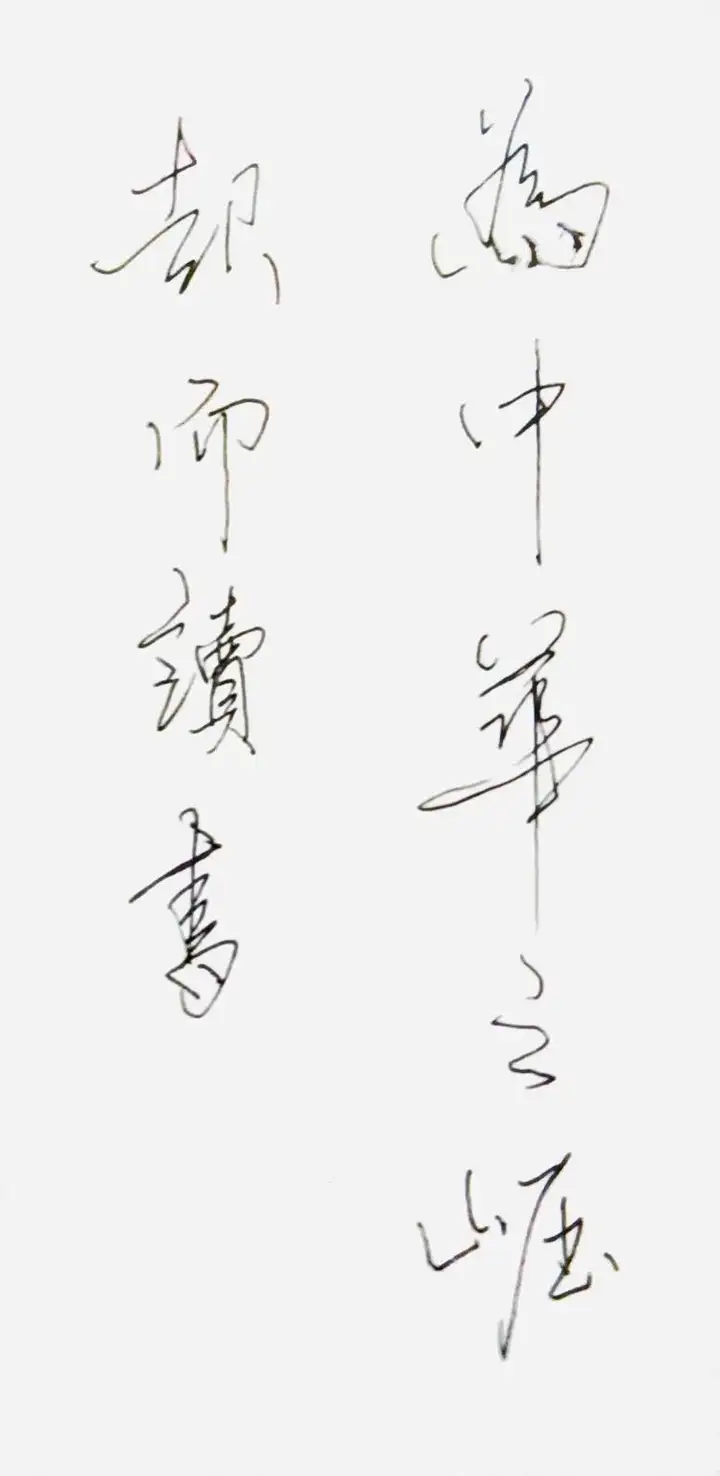 為中華之崛
起而讀書